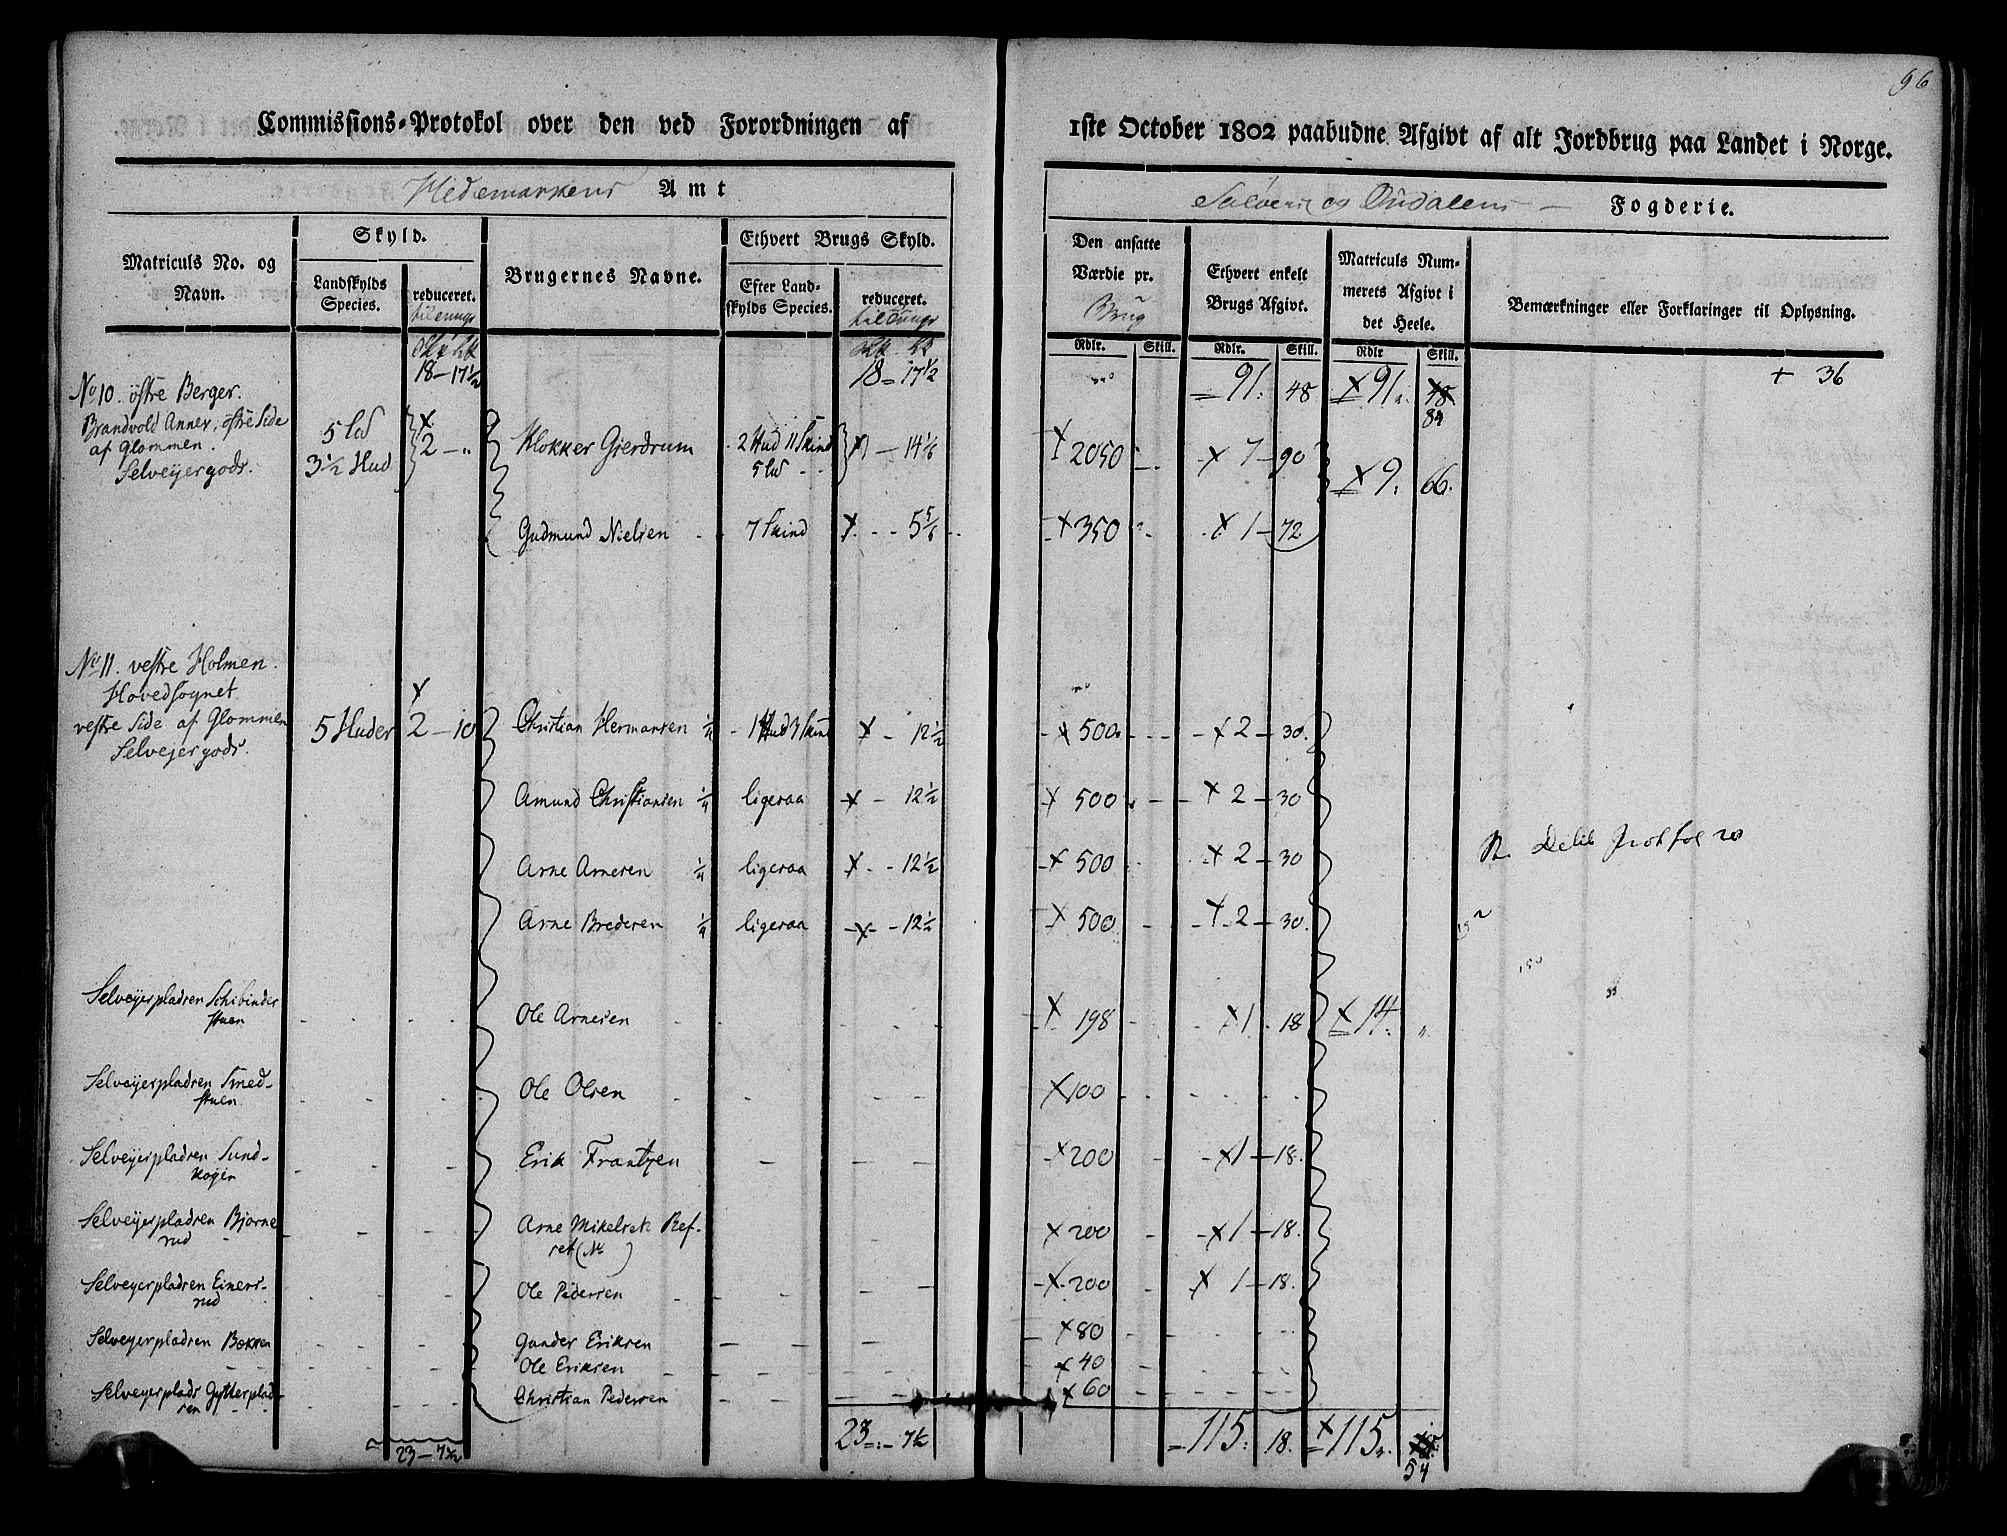 96
Commissions-Protokol over den ved Forordningen af 1ste October 1802 paabudne Afgivt af alt Jordbrug paa Landet i Norge.
Hedemarkens Amt
Soløers og Oudalens Fogderie.
Matriculs No. og Navn.
Skyld.
Landskylds Species.
reduceret.
Brugernes Navne.
Ethvert Brugs Skyld.
Efter Landskylds Species.
reduceret.
Den ansatte Værdie pr. Brug
Ethvert enkelt Brugs Afgivt.
Matriculs Nummerets Afgivt i det Heele.
Bemærkninger eller Forklaringer til Oplysning.
Rdlr. Skill. Rdlr. Skill. Rdlr Skill.
18 - 17 1/2 18 - 17 1/2 91 : 48 x 91 „ 48 + 36
84
No 10. östre Berger.
Brandvold Annex, östre Side
af Glommen.
Selveyergods.
5 ld
3 1/2 Hud
x 2 - „
Klokker Gierdrum 2 Hud 11 Skind
5 ld x - 14 1/6 x 2050 x 7 - 90
x 9. 66.
Gudmund Nielsen 7 Skind x - 5 5/6 x 350 x 1 - 72
No 11. vestre Holmen.
Hovedsognet
vestre Side af Glommen
Selvejergods.
5 Huder x 2 - 10
Christian Hermansen 1/4 1 Hud 3 Skind x - 12 1/2 x 500 x 2 - 30.
Amund Christiansen 1/4 ligeraa x - 12 1/2 x 500 x 2 - 30
Arne Arnesen 1/4 ligeraa x - 12 1/2 x 500 x 2 - 30
Arne Bredesen 1/4 ligeraa x - 12 1/2 x 500 x 2 - 30.
Selveyerpladsen Schibinder
stuen Ole Arnesen x 198 x 1 18 x 14. „
Selveyerpladsen Smed-
stuen Ole Olsen x 100
Selveyerpladsen Sund-
kogen Erik Frantzen x 200 x 1 - 18.
Selveyerpladsen Bjørne
rud Arne Mikelsen x 200 x 1 - 18.
Selveyerpladsen Einers-
rud Ole Pedersen x 200 x 1 - 18.
Selveyerpladsen Bakken Gunder Eriksen x 80
Ole Eriksen x 40
Selveyerplads Gytterplad-
sen Christian Pedersen x 60
23 - 7 1/2 23 - 7 1/2 115. 18. x 115.
54